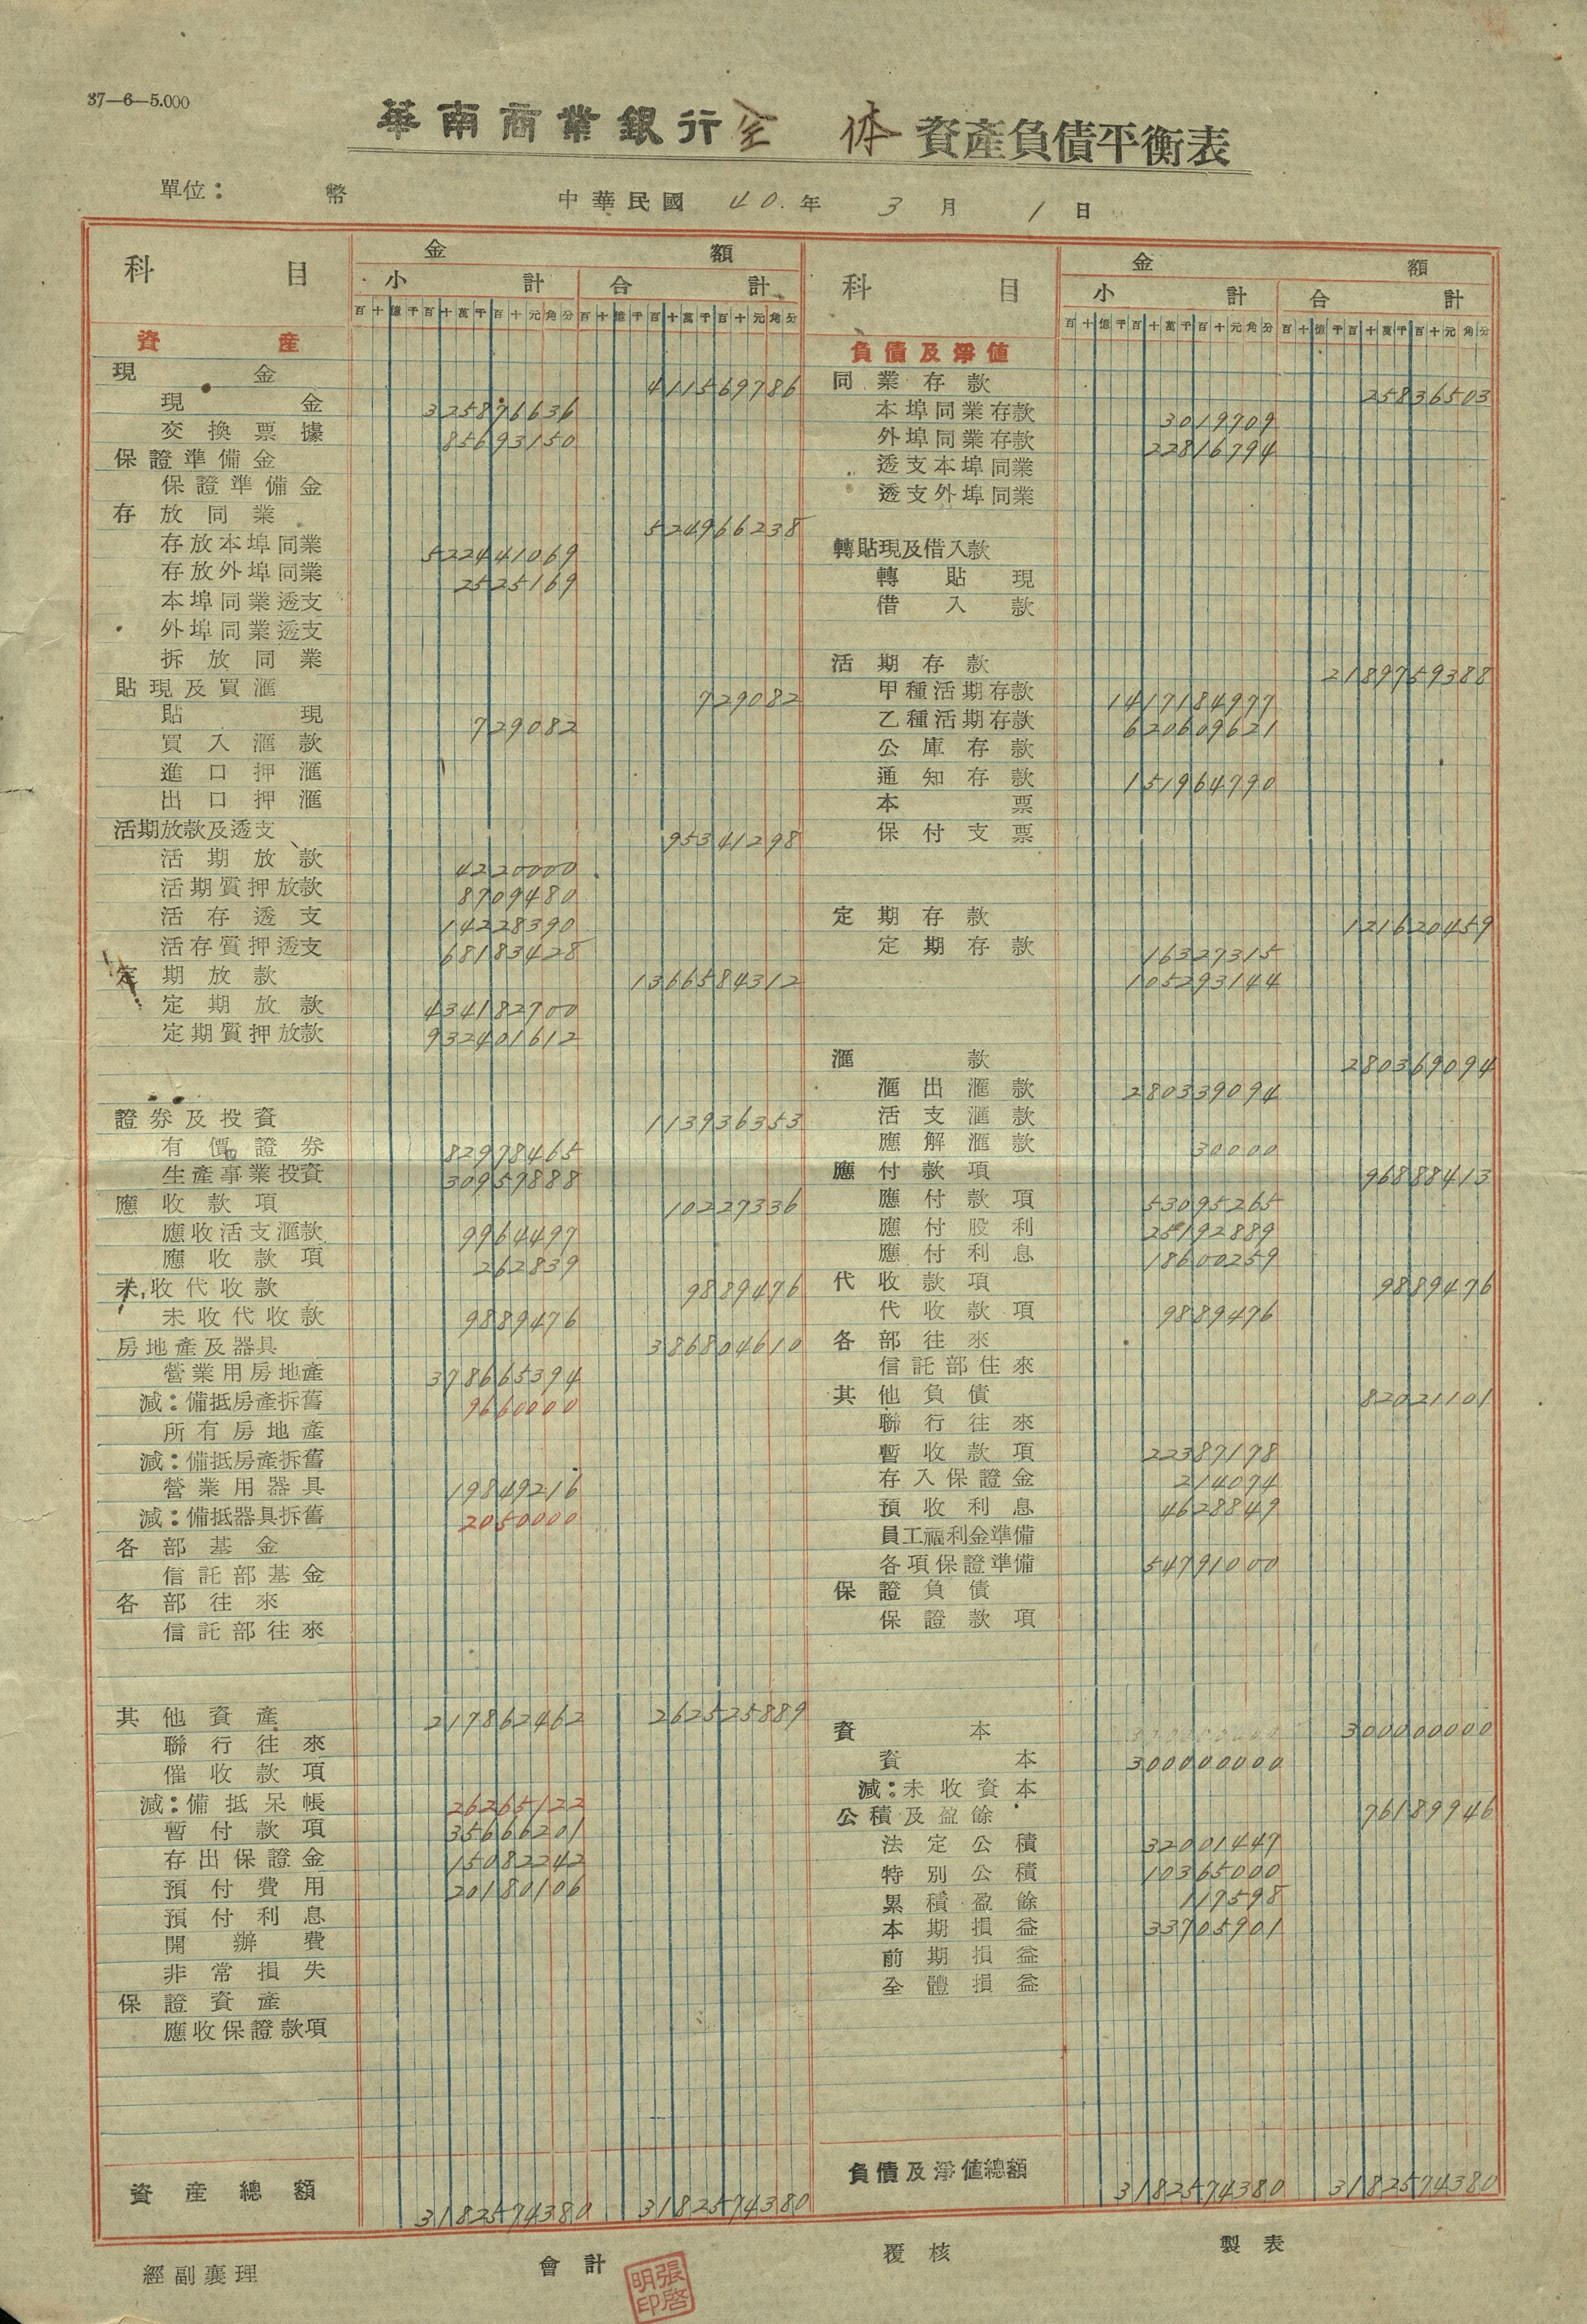 37—6—5.000
華南商業銀行全体資產負債平衡表
單位: 幣 中華民國 40.年 3月 1日
科目 金額 科目 金額
小計 合計 小計 合計
百十億千百十萬千百十元角分 百十億千百十萬千百十元角分 百十億千百十萬千百十元角分 百十億千百十萬千百十元角分
資產
現金 411569786
現金 325876636
交換票據 85693150
保證準備金
保證準備金
存放同業 524966238
存放本埠同業 522441069
存放外埠同業 2525169
本埠同業透支
外埠同業透支
拆放同業
貼現及買滙 729082
貼現 729082
買入滙款
進口押滙
出口押滙
活期放款及透支 95341298
活期放款 4220000
活期質押放款 8709480
活存透支 14228390
活存質押透支 68183428
定期放款 1366584312
定期放款 434182700
定期質押放款 932401612
證券及投資 113936353
有價證券 82978465
生產事業投資 30957888
應收款項 10227336
應收活支滙款 9964497
應收款項 262839
未收代收款 9889476
未收代收款 9889476
房地產及器具 386804610
營業用房地產 378665394
減:備抵房產拆舊 9660000
所有房地產
減:備抵房產拆舊
營業用器具 19849216
減:備抵器具拆舊 2050000
各部基金
信託部基金
各部往來
信託部往來
其他資產 217862462 262525889
聯行往來
催收款項
減:備抵呆帳 26265122
暫付款項 35666201
存出保證金 15082242
預付費用 20180106
預付利息
開辦費
非常損失
保證資產
應收保證款項
資產總額 3182574380 3182574380
負債及淨值
同業存款 25836503
本埠同業存款 3019709
外埠同業存款 22816794
透支本埠同業
透支外埠同業
轉貼現及借入款
轉貼現
借入款
活期存款 2189759388
甲種活期存款 1417184977
乙種活期存款 620609621
公庫存款
通知存款 151964790
本票
保付支票
定期存款 121620459
定期存款 16327315
105293144
滙款 280369094
滙出滙款 280339094
活支滙款
應解滙款 30000
應付款項 96888413
應付款項 53095265
應付股利 25192889
應付利息 18600259
代收款項 9889476
代收款項 9889476
各部往來
信託部往來
其他負債 82021101
聯行往來
暫收款項 22387178
存入保證金 214074
預收利息 4628849
員工福利金準備
各項保證準備 54791000
保證負債
保證款項
資本 300000000
資本 300000000
減:未收資本
公積及盈餘 76189946
法定公積 32001447
特別公積 10365000
累積盈餘 117598
本期損益 33705901
前期損益
全體損益
負債及淨值總額 3182574380 3182574380
經副襄理 會計 覆核 製表
張啓明印